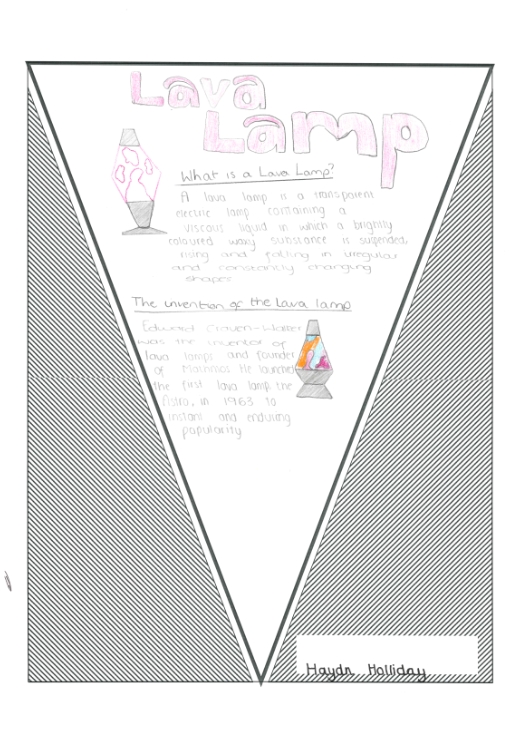 Lava
Lamp
What is a Lava Lamp?
A lava lamp is a transparent
electric lamp containing a
viscous liquid in which a brightly
coloured waxy substance is suspended,
rising and falling in irregular
and constantly changing
shapes
The invention of the Lava lamp
Edward Craven-Walker
was the inventor of
lava lamps and founder
of Mathmos. He launched
the first lava lamp, the
Astro, in 1963 to
instant and enduring
popularity
Haydn Holliday